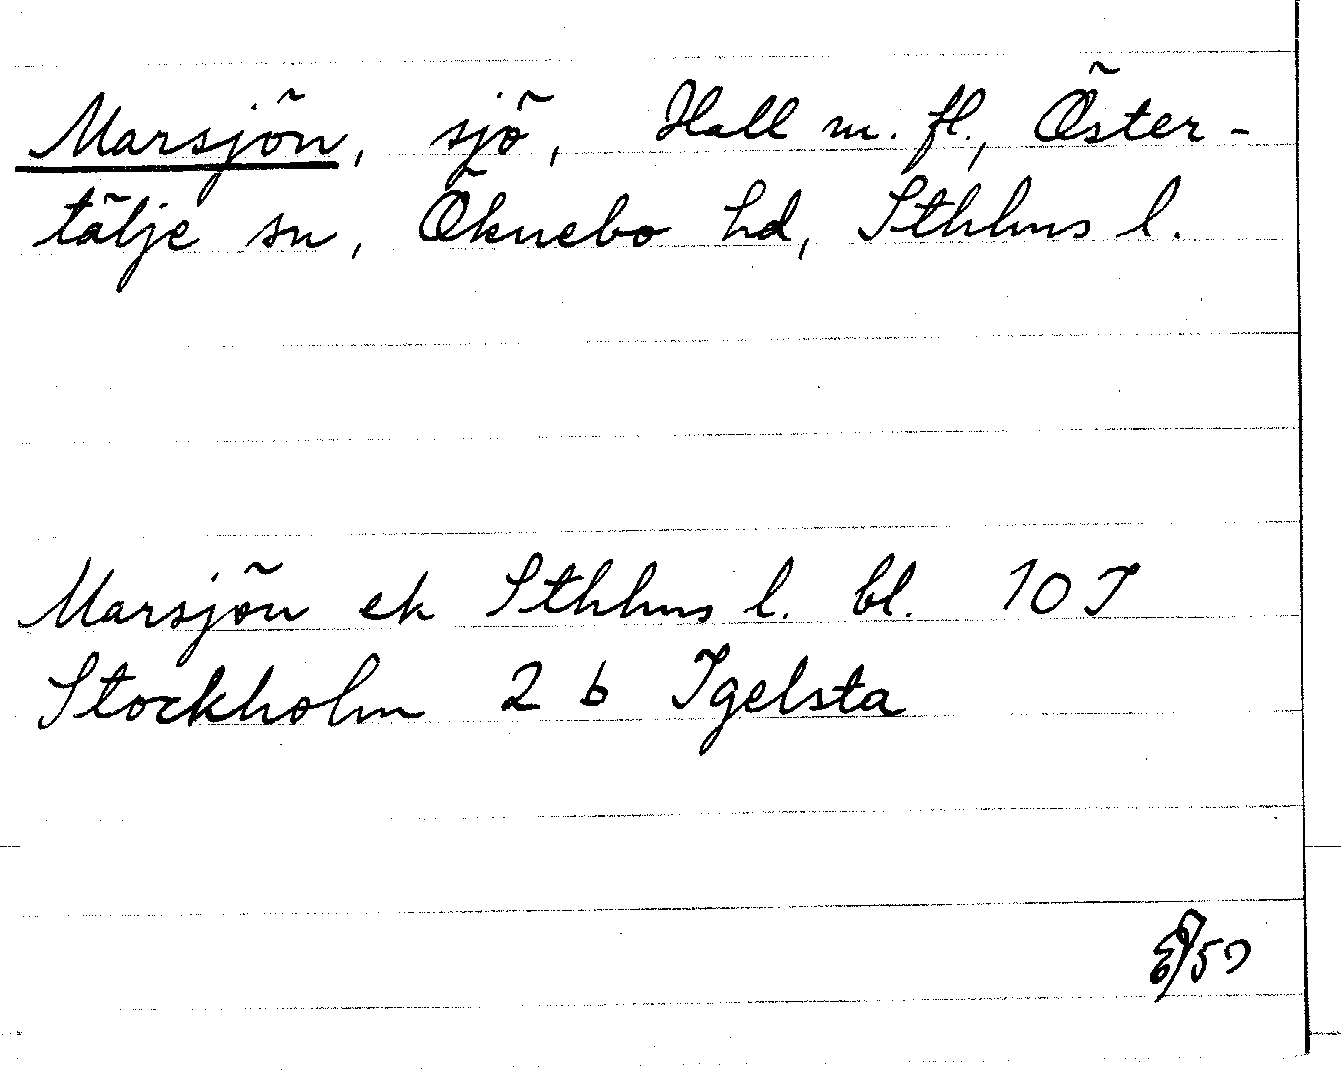 Marsjön, sjö, Hall m. fl., Öster-
tälje sn, Öknebo hd, Sthlms l.
Marsjön ek Sthlms l. bl. 10 I
Stockholm 2 b Igelsta